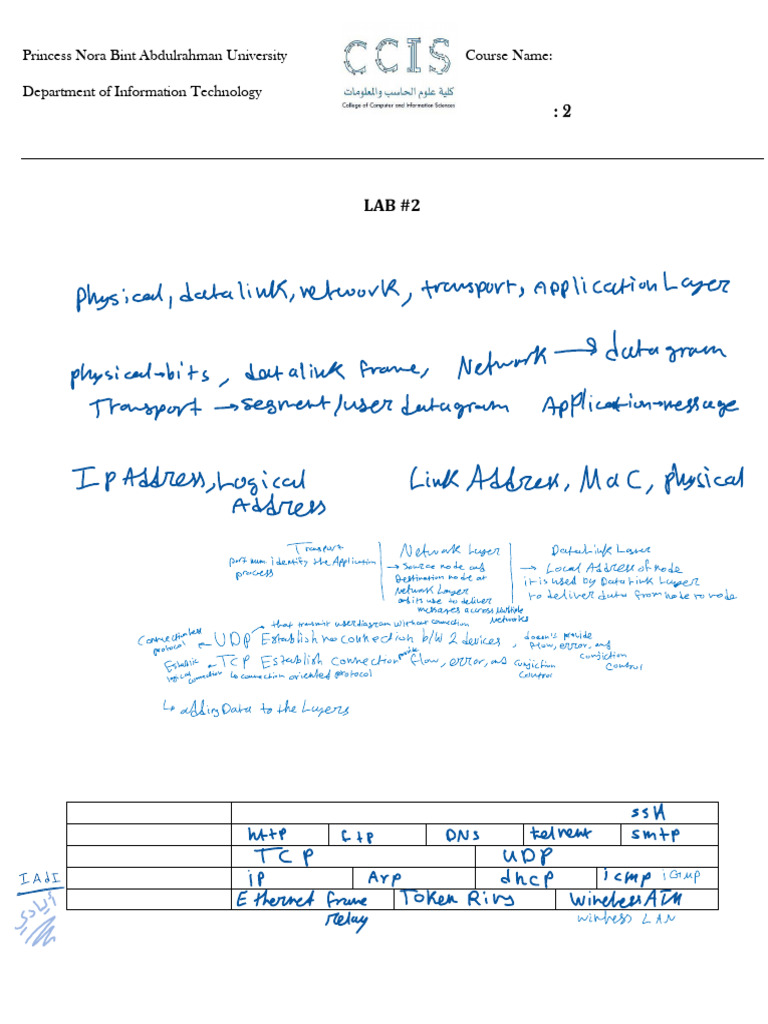 Princess Nora Bint Abdulrahman University
CCIS
Course Name:
Department of Information Technology
كلية علوم الحاسب والمعلومات
College of Computer and Information Sciences
: 2
LAB #2
physical, datalink, network, transport, Application Layer
physical→bits, datalink frame, Network → datagram
Transport → segment/user datagram Application→message
Ip Address, Logical Address
Link Address, MaC, physical
Transport
port num identify the Application
process
Network Layer
→ Source node and
Destination node at
Network Layer
its use to deliver
messages across Multiple
Networks
DataLink Layer
→ Local Address of node
it is used by DataLink Layer
to deliver data from node to node
that transmit userdiagram without connection
Connectionless protocol ← UDP Establish no connection b/w 2 devices, doesn't provide flow, error, and conjiction control
logical connection ← TCP Establish connection provide flow, error, and conjiction control
↳ connection oriented protocol
↳ adding Data to the Layers
ssh
http ftp DNS telnent smtp
TCP UDP
IAdI
ip Arp dhcp icmp iGmp
Ethernet frame relay Token Ring wirelessATM
wireless LAN